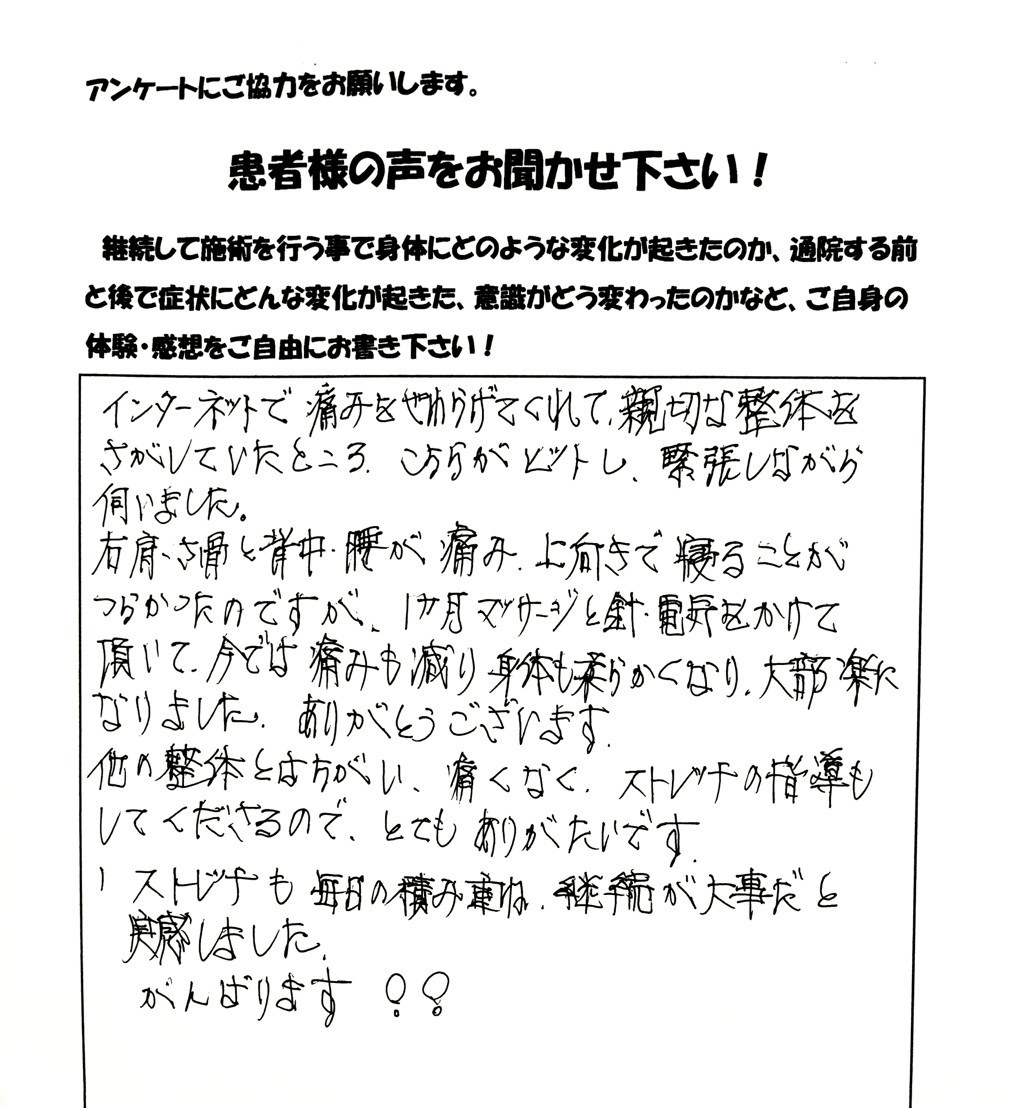 アンケートにご協力をお願いします。
患者様の声をお聞かせ下さい！
継続して施術を行う事で身体にどのような変化が起きたのか、通院する前
と後で症状にどんな変化が起きた、意識がどう変わったのかなど、ご自身の
体験・感想をご自由にお書き下さい！
インターネットで痛みをやわらげてくれて、親切な整体を
さがしていたところ、こちらがヒットし、緊張しながら
伺いました。
右肩、さ骨と背中・腰が痛み、上向きで寝ることが
つらかったのですが、1ヶ月マッサージと針・電気をかけて
頂いて、今では痛みも減り身体も柔らかくなり、大部楽に
なりました。ありがとうございます。
他の整体とはちがい、痛くなく、ストレッチの指導も
してくださるので、とてもありがたいです。
ストレッチも毎日の積み重ね、継続が大事だと
実感しました。
がんばります!!